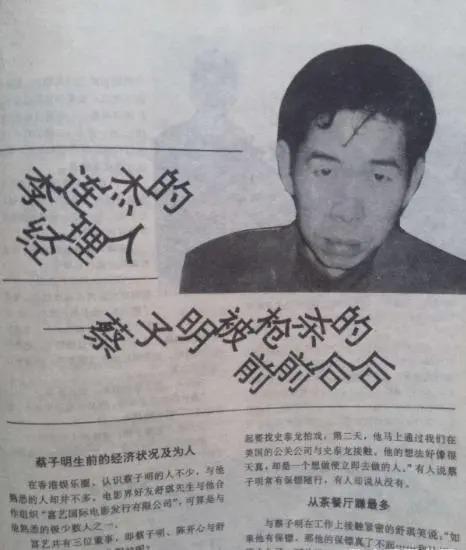 李连杰的
经理人
——蔡子明被枪杀的
前前后后
蔡子明生前的经济状况及为人
在香港娱乐圈，认识蔡子明的人不少，与他
熟悉的人却并不多。电影界好友舒琪先生与他合
作组织“富艺国际电影发行有限公司”，可算是与
他熟悉的极少数人之一。
富艺共有三位董事，即蔡子明、陈开心与舒
起要找史泰龙拍戏，第二天，他马上通过我们在
美国的公关公司与史泰龙接触。他的想法好像很
天真，却是一个想做便立即去做的人。”有人说蔡
子明常有保镖随行，有人却说从没有。
从茶餐厅赚最多
与蔡子明在工作上接触紧密的舒琪笑说，“如
果他有保镖，那他的保镖真了不面